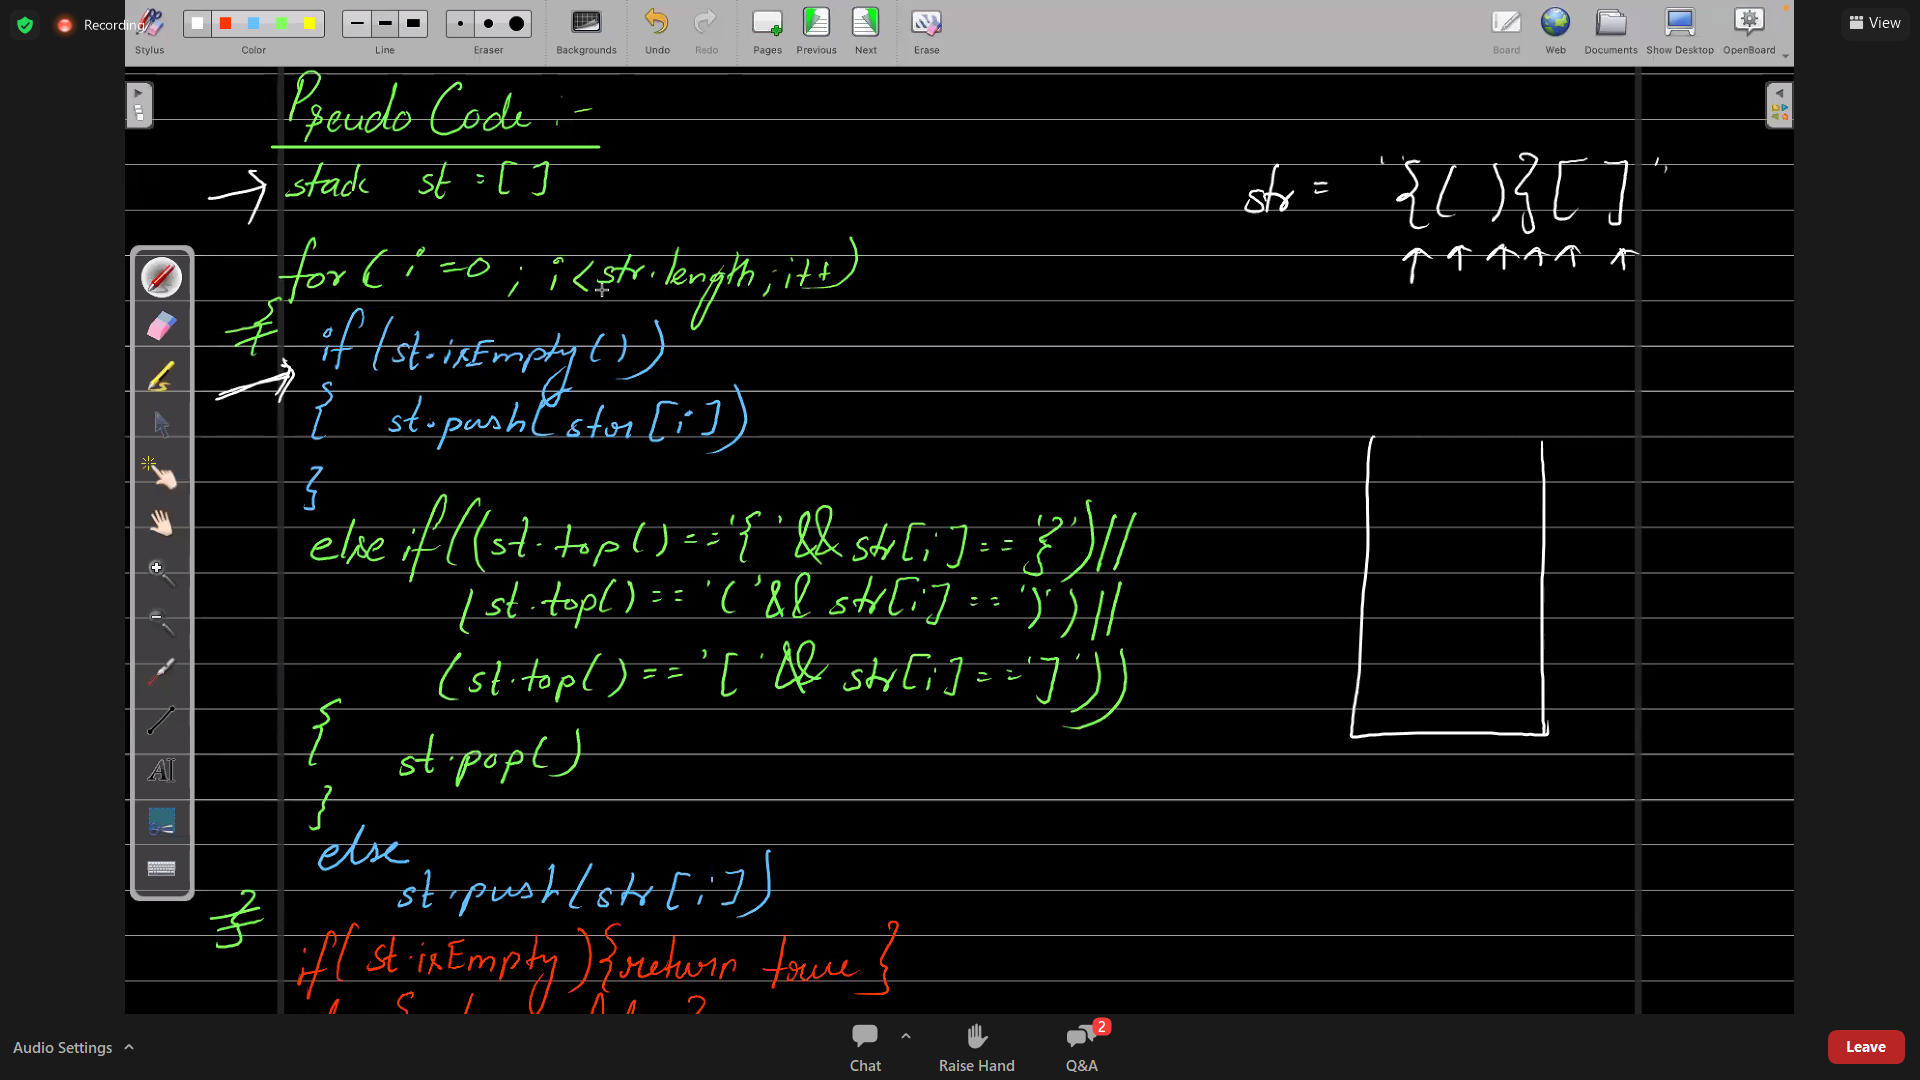 Recording
View
Stylus
Color
Line
Eraser
Backgrounds
Undo
Redo
Pages
Previous
Next
Erase
Board
Web
Documents
Show Desktop
OpenBoard
Pseudo Code :-
stack st = [ ]
str = "{( )}[ ]"
for ( i = 0 ; i < str.length ; i++)
{
if (st.isEmpty())
{ st.push(stor[i])
}
else if((st.top() == '{' && str[i] == '}') ||
(st.top() == '(' && str[i] == ')') ||
(st.top() == '[' && str[i] == ']'))
{
st.pop()
}
else
st.push(str[i])
}
if( st.isEmpty ){return true }
AI
Audio Settings
Chat
Raise Hand
Q&A
2
Leave